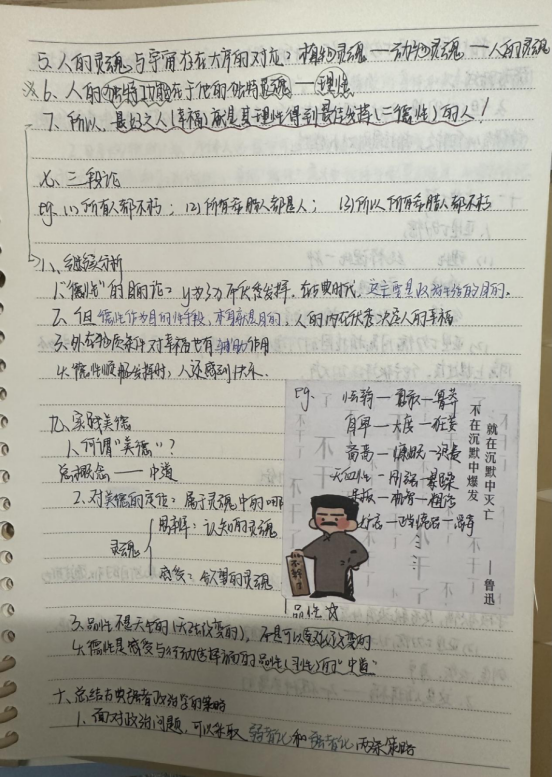 5. 人的灵魂与宇宙存在大序的对应：植物灵魂 — 动物灵魂 — 人的灵魂
※ 6. 人的独特功能在于他的独特灵魂 — 理性
7. 所以，最好之人（幸福）就是其理性得到最佳发挥（=德性）的人！
七、三段论
eg. (1) 所有人都不朽；(2) 所有希腊人都是人；(3) 所以所有希腊人都不朽
八、继续分析
1. "德性"的目的论：
在古典时代，这主要是以共同生活为目的。
2. 但德性作为目的性手段，本身就是目的，人的内在优秀决定人的幸福
3. 外在物质条件对幸福也有辅助作用
4. 德性顺畅发挥时，人还感到快乐.
九、实践美德
1. 何谓"美德"？
总概念 —— 中道
2. 对美德的定位：属于灵魂中的哪
灵魂
思辨：认知的灵魂
感发：欲望的灵魂
品性
eg. 怯弱 — 勇敢 — 鲁莽
自卑 — 大度 — 狂妄
就在沉默中灭亡
不在沉默中爆发
——鲁迅
不干了
3. 品性不是天生的（无法改变的），不是可以
4. 德性是感受与行动选择方面的品性（习性）的"中道"
十、总结古典哲者政治学的策略
1. 面对政治问题，可以采取 强者化 和 弱者化 两条策略